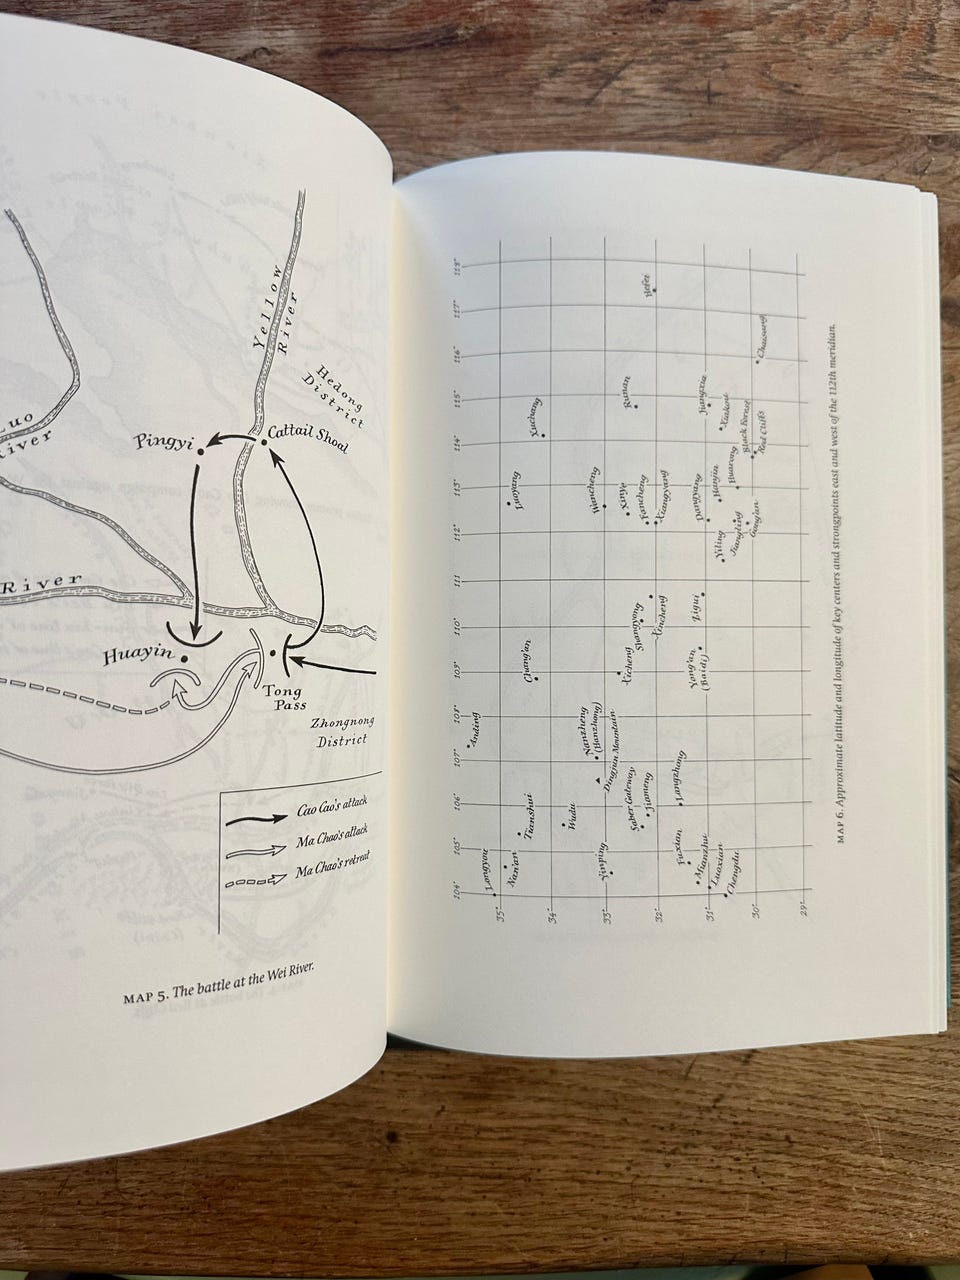 Luo
River
Yellow
River
Hedong
District
Pingyi
Cattail Shoal
River
Huayin
Tong
Pass
Zhongnong
District
Cao Cao's attack
Ma Chao's attack
Ma Chao's retreat
MAP 5. The battle at the Wei River.
104°
105°
106°
107°
108°
109°
110°
111
112°
113°
114°
115°
116°
117°
118°
35°
34°
33°
32°
31°
30°
29°
Longyou
Nan'an
Tianshui
Anding
Wudu
Chang'an
Luoyang
Xuchang
Yinping
Dingjun Mountain
Nanzheng
(Hanzhong)
Saber Gateway
Jiameng
Xicheng
Shangyong
Xincheng
Wancheng
Xinye
Fancheng
Xiangyang
Runan
Hefei
Fuxian
Mianzhu
Luoxian
Chengdu
Langzhong
Yong'an
(Baidi)
Zigui
Yiling
Dangyang
Jiangling
Gong'an
Hanjin
Huarong
Black Forest
Red Cliffs
Xiakou
Jiangxia
Chaisang
MAP 6. Approximate latitude and longitude of key centers and strongpoints east and west of the 112th meridian.